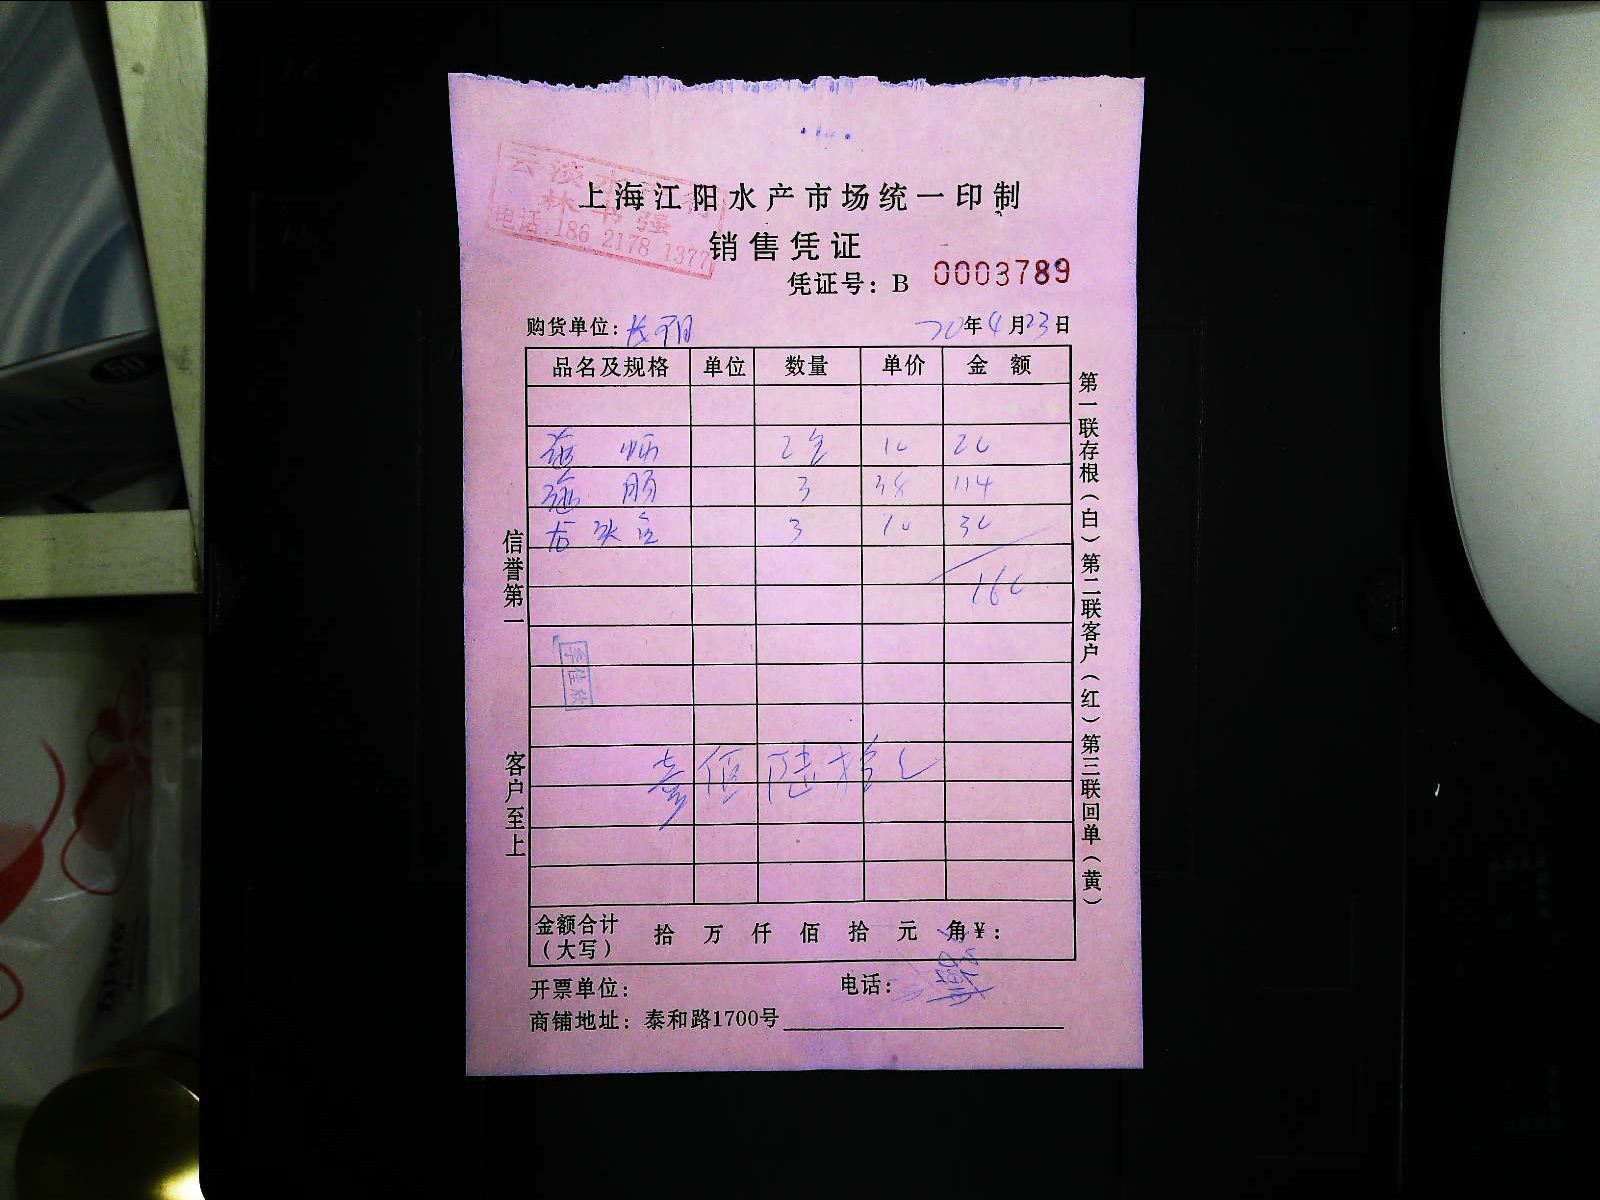 上海江阳水产市场统一印制
电话:186 2178 1377
销售凭证
凭证号：B 0003789
购货单位：长翔 20年4月23日
品名及规格 单位 数量 单价 金额
2 10 20
3 38 114
3 10 30
160
壹佰陆拾元
金额合计（大写） 拾 万 仟 佰 拾 元 角￥：
开票单位： 电话：
商铺地址：泰和路1700号
信誉第一 客户至上
第一联存根（白）第二联客户（红）第三联回单（黄）